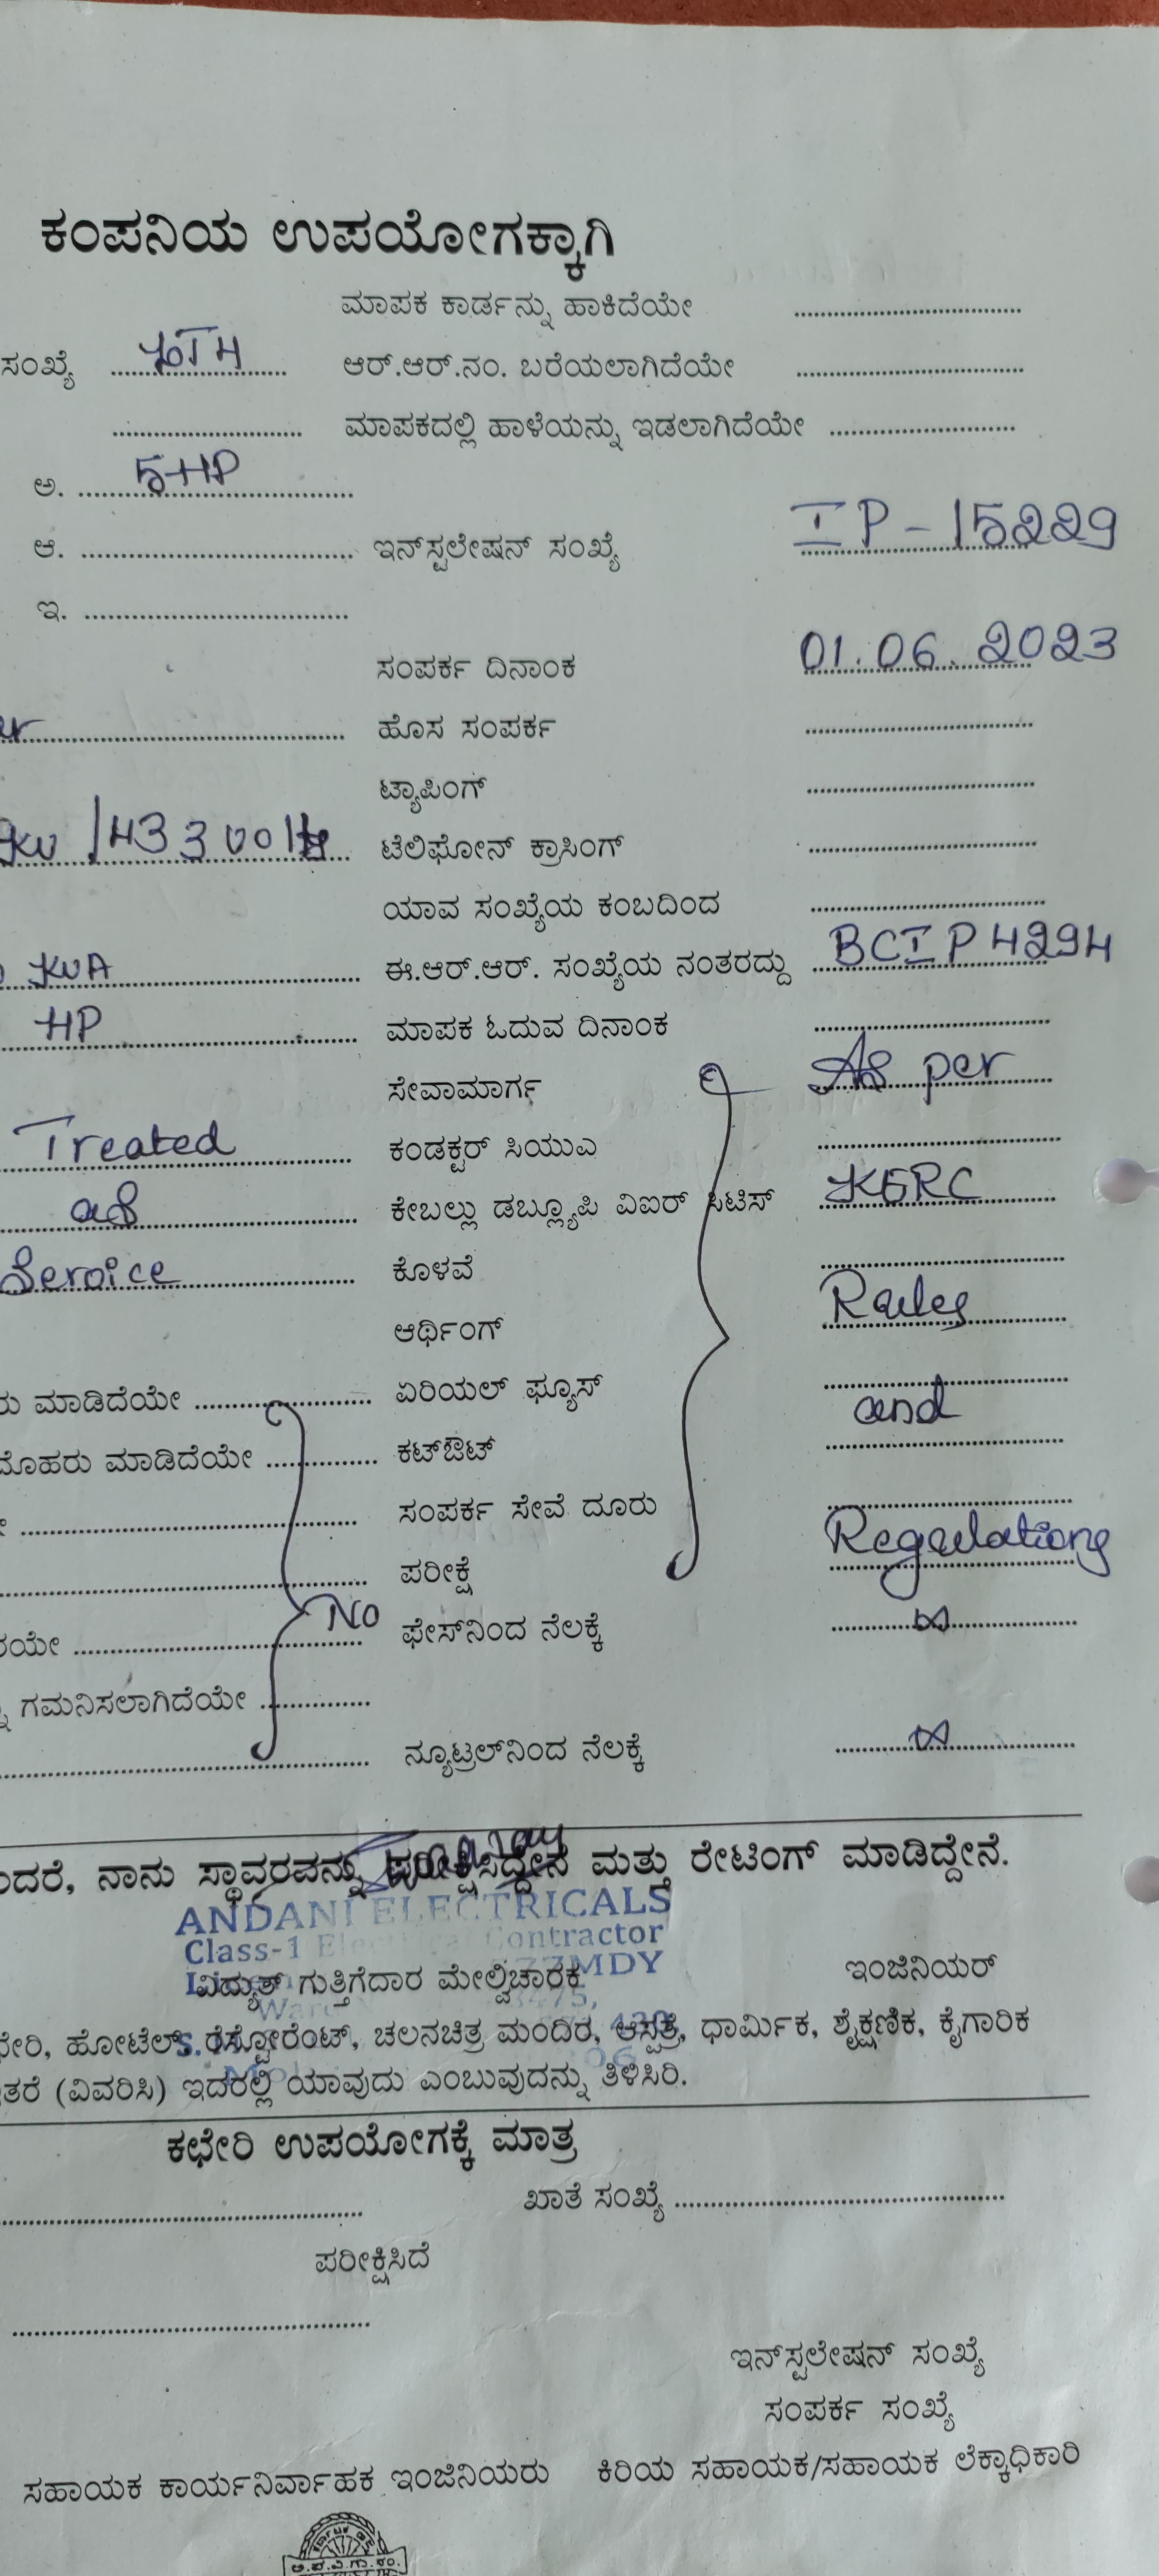 ಕಂಪನಿಯ ಉಪಯೋಗಕ್ಕಾಗಿ
ಮಾಪಕ ಕಾರ್ಡನ್ನು ಹಾಕಿದೆಯೇ ....................
ಸಂಖ್ಯೆ .................... ಆರ್.ಆರ್.ನಂ. ಬರೆಯಲಾಗಿದೆಯೇ ....................
.................... ಮಾಪಕದಲ್ಲಿ ಹಾಳೆಯನ್ನು ಇಡಲಾಗಿದೆಯೇ ....................
ಅ. 5HP
ಆ. .................... ಇನ್‌ಸ್ಟಲೇಷನ್ ಸಂಖ್ಯೆ IP-15229
ಇ. ....................
ಸಂಪರ್ಕ ದಿನಾಂಕ 01.06.2023
ಹೊಸ ಸಂಪರ್ಕ ....................
ಟ್ಯಾಪಿಂಗ್ ....................
ಟೆಲಿಫೋನ್ ಕ್ರಾಸಿಂಗ್ ....................
ಯಾವ ಸಂಖ್ಯೆಯ ಕಂಬದಿಂದ ....................
KVA ಈ.ಆರ್.ಆರ್. ಸಂಖ್ಯೆಯ ನಂತರದ್ದು BCIP4294
HP ಮಾಪಕ ಓದುವ ದಿನಾಂಕ ....................
ಸೇವಾಮಾರ್ಗ As per
Treated ಕಂಡಕ್ಟರ್ ಸಿಯುಎ ....................
as ಕೇಬಲ್ಲು ಡಬ್ಲ್ಯೂಪಿ ವಿಐರ್ ಸಿಟಿಸ್ KERC
Service ಕೊಳವೆ ....................
ಆರ್ಥಿಂಗ್ Rules
ಮಾಡಿದೆಯೇ .................... ಏರಿಯಲ್ ಫ್ಯೂಸ್ ....................
ಮೊಹರು ಮಾಡಿದೆಯೇ .................... ಕಟ್‌ಔಟ್ and
.................... ಸಂಪರ್ಕ ಸೇವೆ ದೂರು ....................
.................... ಪರೀಕ್ಷೆ Regulations
.................... No ಫೇಸ್‌ನಿಂದ ನೆಲಕ್ಕೆ ∞
ಗಮನಿಸಲಾಗಿದೆಯೇ ....................
.................... ನ್ಯೂಟ್ರಲ್‌ನಿಂದ ನೆಲಕ್ಕೆ ∞
ನಾನು ಸ್ಥಾವರವನ್ನು ಪರೀಕ್ಷಿಸಿದ್ದೇನೆ ಮತ್ತು ರೇಟಿಂಗ್ ಮಾಡಿದ್ದೇನೆ.
ANDANI ELECTRICALS
Class-1 Electrical Contractor
ವಿದ್ಯುತ್ ಗುತ್ತಿಗೆದಾರ ಮೇಲ್ವಿಚಾರಕ ಇಂಜಿನಿಯರ್
ಹೋಟೆಲ್, ರೆಸ್ಟೋರೆಂಟ್, ಚಲನಚಿತ್ರ ಮಂದಿರ, ಆಸ್ಪತ್ರೆ, ಧಾರ್ಮಿಕ, ಶೈಕ್ಷಣಿಕ, ಕೈಗಾರಿಕ
(ವಿವರಿಸಿ) ಇದರಲ್ಲಿ ಯಾವುದು ಎಂಬುವುದನ್ನು ತಿಳಿಸಿರಿ.
ಕಛೇರಿ ಉಪಯೋಗಕ್ಕೆ ಮಾತ್ರ
.................... ಖಾತೆ ಸಂಖ್ಯೆ ....................
ಪರೀಕ್ಷಿಸಿದೆ
....................
ಇನ್‌ಸ್ಟಲೇಷನ್ ಸಂಖ್ಯೆ
ಸಂಪರ್ಕ ಸಂಖ್ಯೆ
ಸಹಾಯಕ ಕಾರ್ಯನಿರ್ವಾಹಕ ಇಂಜಿನಿಯರು ಕಿರಿಯ ಸಹಾಯಕ/ಸಹಾಯಕ ಲೆಕ್ಕಾಧಿಕಾರಿ